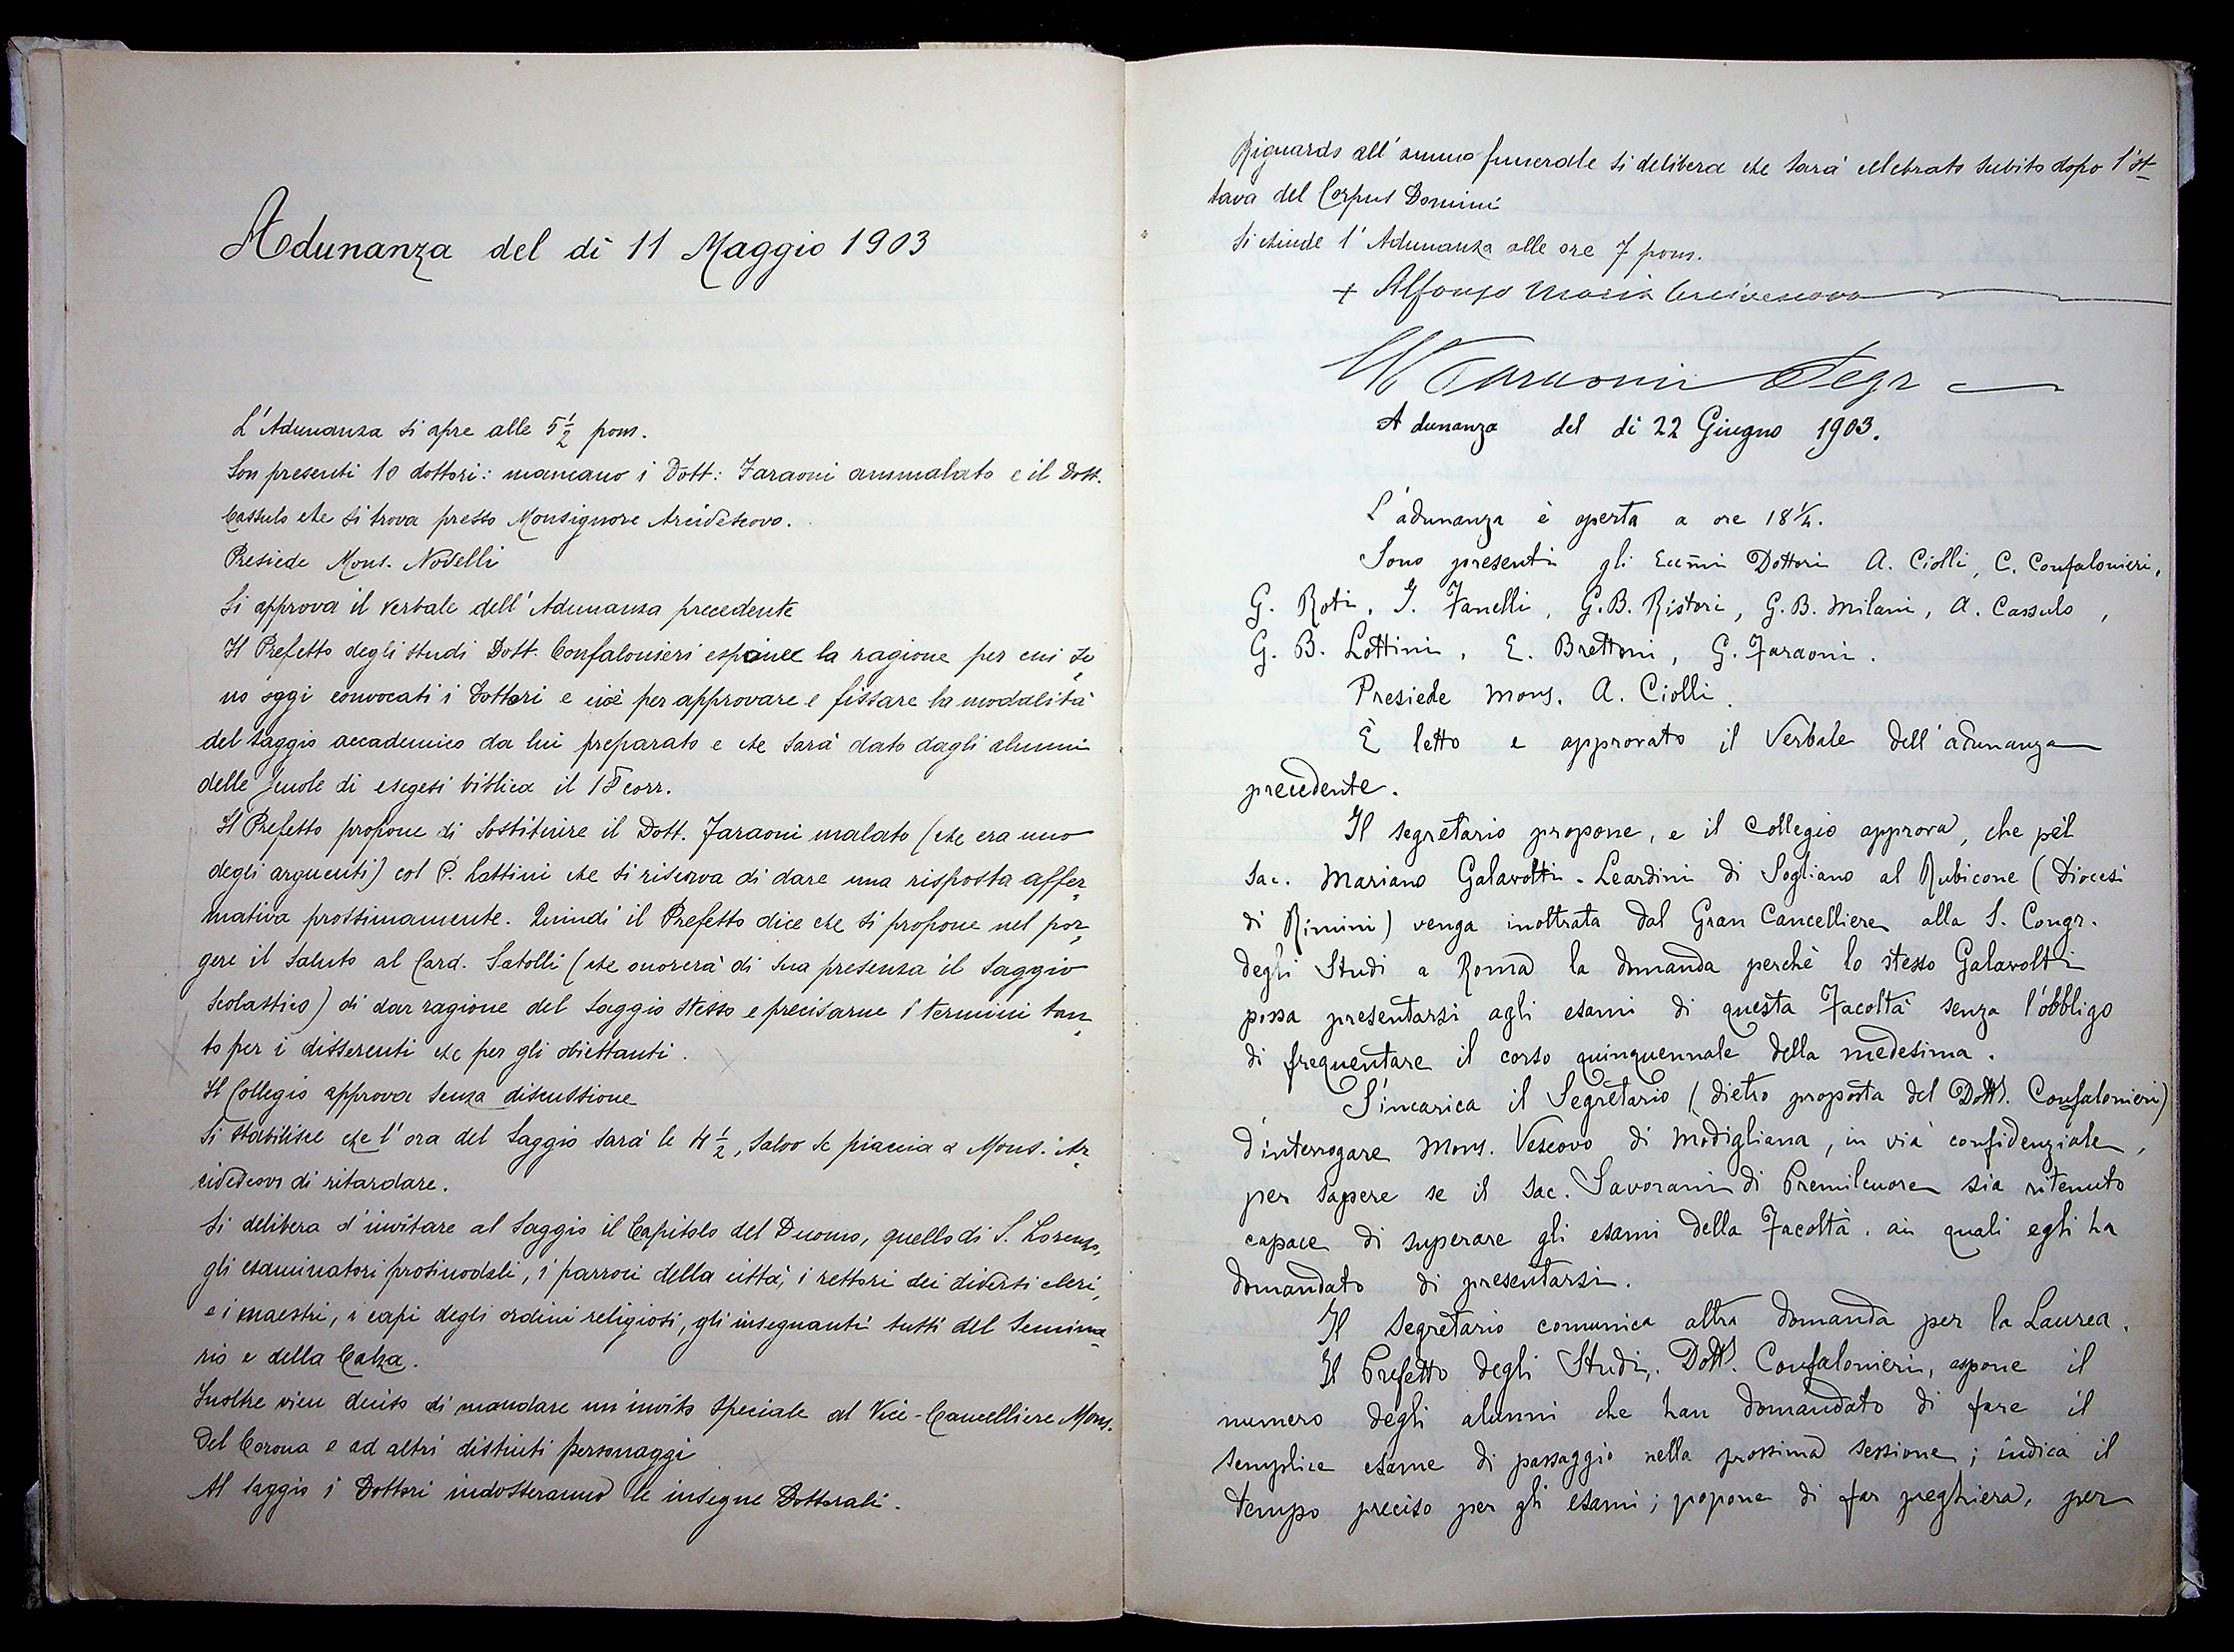 Adunanza del dì 11 Maggio 1903
L'Adunanza si apre alle 5 1/2 pom.
Son presenti 10 dottori: mancano i Dott: Faraoni ammalato e il Dott.
Cassulo che si trova presso Monsignore Arcivescovo.
Presiede Mons. Novelli
Si approva il verbale dell'Adunanza precedente
Il Prefetto degli studi Dott. Confalonieri espone la ragione per cui so„
no oggi convocati i Dottori e cioè per approvare e fissare la modalità
del saggio accademico da lui preparato e che sarà dato dagli alunni
delle scuole di esegesi biblica il 18 corr.
Il Prefetto propone di sostituire il Dott. Faraoni malato (che era uno
degli arguenti) col P. Lottini che si riserva di dare una risposta affer„
mativa prossimamente. Quindi il Prefetto dice che si propone nel por„
gere il saluto al Card. Satolli (che onorerà di sua presenza il saggio
scolastico) di dar ragione del saggio stesso e precisarne i termini tan„
to per i disserenti che per gli obiettanti.
Il Collegio approva senza discussione
Si stabilisce che l'ora del saggio sarà le 4 1/2, salvo se piaccia a Mons. Ar„
civescovo di ritardare.
Si delibera d'invitare al saggio il Capitolo del Duomo, quello di S. Lorenzo,
gli esaminatori prosinodali, i parroci della città, i rettori dei diversi cleri,
e i maestri, i capi degli ordini religiosi, gli insegnanti tutti del Semina„
rio e della Calza.
Inoltre vien deciso di mandare un invito speciale al Vice-Cancelliere Mons.
Del Corona e ad altri distinti personaggi
Al saggio i Dottori indosseranno le insegne Dottorali.
Riguardo all'annuo funerale si delibera che sarà celebrato subito dopo l'ot-
tava del Corpus Domini
Si chiude l'Adunanza alle ore 7 pom.
+ Alfonso Maria Arcivescovo
Faraoni Segr
Adunanza del dì 22 Giugno 1903.
L'adunanza è aperta a ore 18 1/4.
Sono presenti gli Eccm̃i Dottori A. Ciolli, C. Confalonieri,
G. Roti, G. Fanelli, G.B. Ristori, G.B. Milani, A. Cassulo,
G. B. Lottini, E. Brettoni, G. Faraoni.
Presiede Mons. A. Ciolli.
È letto e approvato il Verbale dell'adunanza
precedente.
Il segretario propone, e il Collegio approva, che pel
Sac. Mariano Galavotti-Leardini di Sogliano al Rubicone (Diocesi
di Rimini) venga inoltrata dal Gran Cancelliere alla S. Congr.
degli Studi a Roma la domanda perchè lo stesso Galavotti
possa presentarsi agli esami di questa Facoltà senza l'obbligo
di frequentare il corso quinquennale della medesima.
S'incarica il Segretario (dietro proposta del Dott. Confalonieri)
d'interrogare Mons. Vescovo di Modigliana, in via confidenziale,
per sapere se il Sac. Savorani di Premilcuore sia ritenuto
capace di superare gli esami della Facoltà, ai quali egli ha
domandato di presentarsi.
Il Segretario comunica altra domanda per la Laurea.
Il Prefetto degli Studi, Dott. Confalonieri, espone il
numero degli alunni che han domandato di fare il
semplice esame di passaggio nella prossima sessione; indica il
tempo preciso per gli esami; propone di far preghiera, per